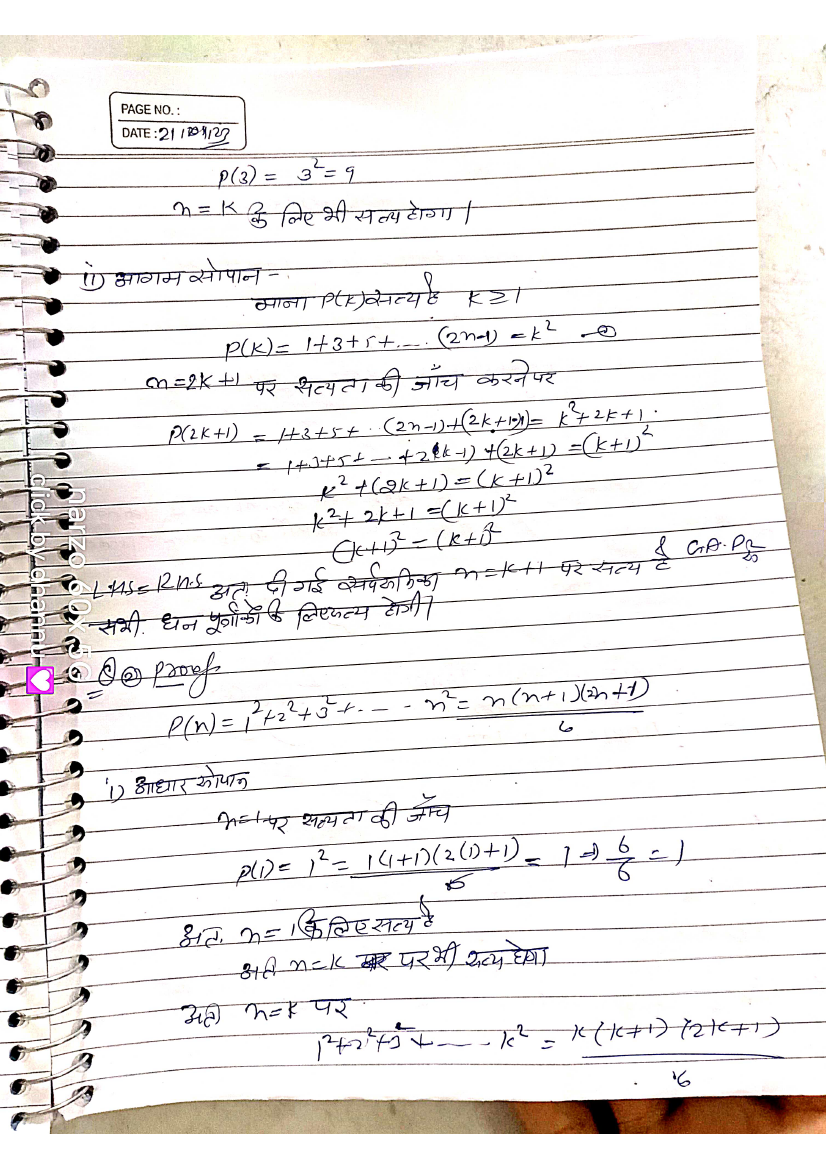 PAGE NO. :
DATE : 21
P(3) = 3² = 9
n = K के लिए भी सत्य होगा |
ii) आगम सोपान -
माना P(K) सत्य है K ≥ 1
P(K) = 1+3+5+.... (2n-1) = k² - ②
n = 2K+1 पर सत्यता की जाँच करने पर
P(2K+1) = 1+3+5+ .. (2n-1)+(2k+1) = k²+2k+1 .
= 1+3+5+ ... +2(k-1) +(2k+1) = (k+1)²
k² + (2k+1) = (k+1)²
k² + 2k+1 = (k+1)²
(k+1)² = (k+1)²
L.H.S = R.H.S अतः दी गई n = k+1 पर सत्य है
सभी धन पूर्णांकों के लिए सत्य होगी |
② Proof
P(n) = 1²+2²+3²+ .... n² = n(n+1)(2n+1)
6
i) आधार सोपान
n=1 पर सत्यता की जाँच
P(1) = 1² = 1(1+1)(2(1)+1) = 1 ⇒ 6/6 = 1
6
अतः n = 1 के लिए सत्य है
अतः n=k पर भी सत्य होगा
अतः n=k पर
1²+2²+3²+ .... k² = k(k+1)(2k+1)
6
narzo 60x 5G
click by dhannu